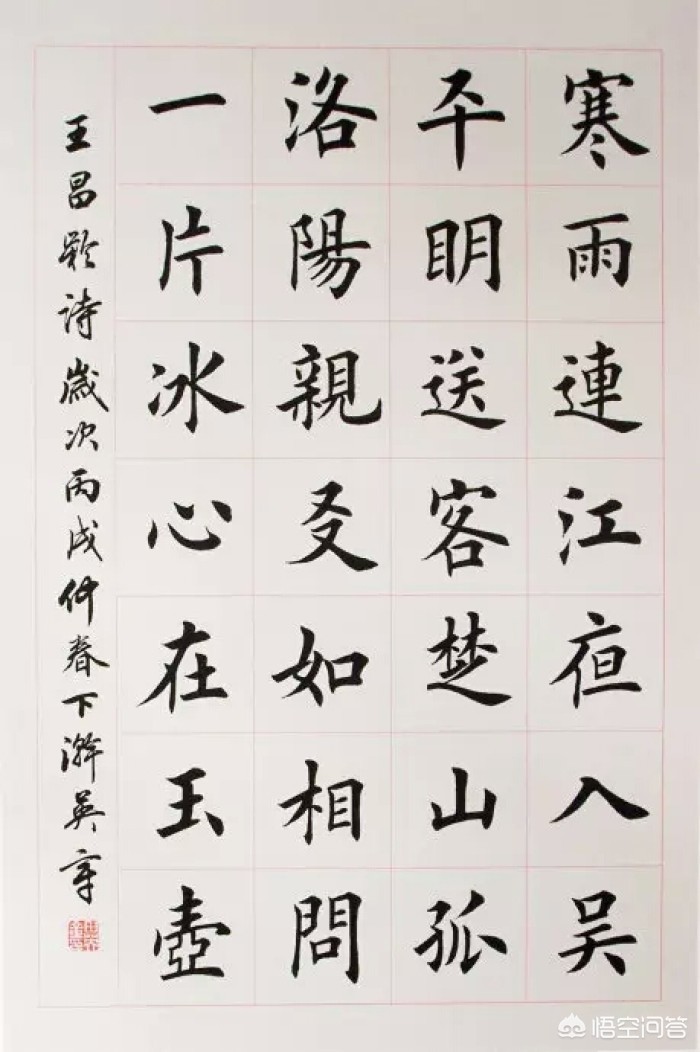 寒雨連江夜入吴
平眀送客楚山孤
洛陽親友如相問
一片冰心在玉壺
王昌齡诗歲次丙戌仲春下澣英章
悟空问答